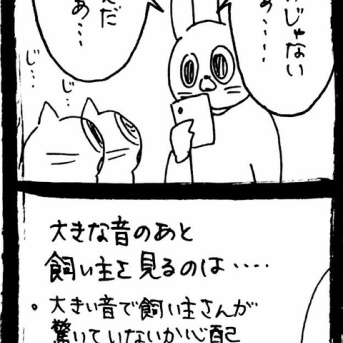 じゃない
ぁ・・・・
だ
あ・・・
じ・・・
じ・・・
大きな音のあと
飼い主を見るのは・・・・
。大きい音で飼い主さんが
驚いていないか心配